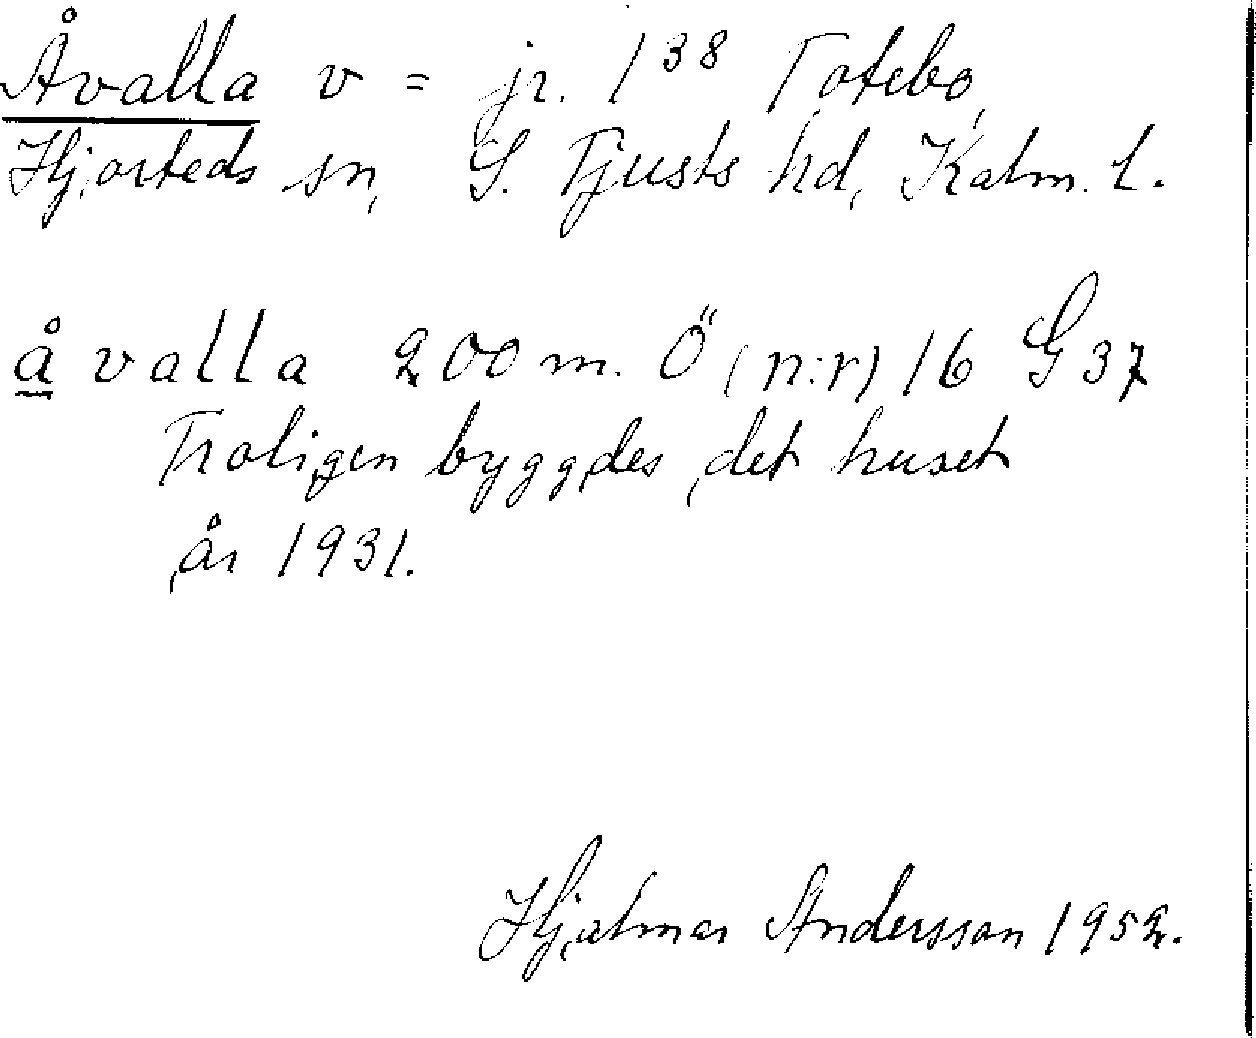 Åvalla v = jr. 1³⁸ Totebo,
Hjorteds sn, S. Tjusts hd, Kalm. l.
åvalla 200 m. Ö (n:r) 16 G 37
Troligen byggdes det huset
år 1931.
Hjalmar Andersson 1952.